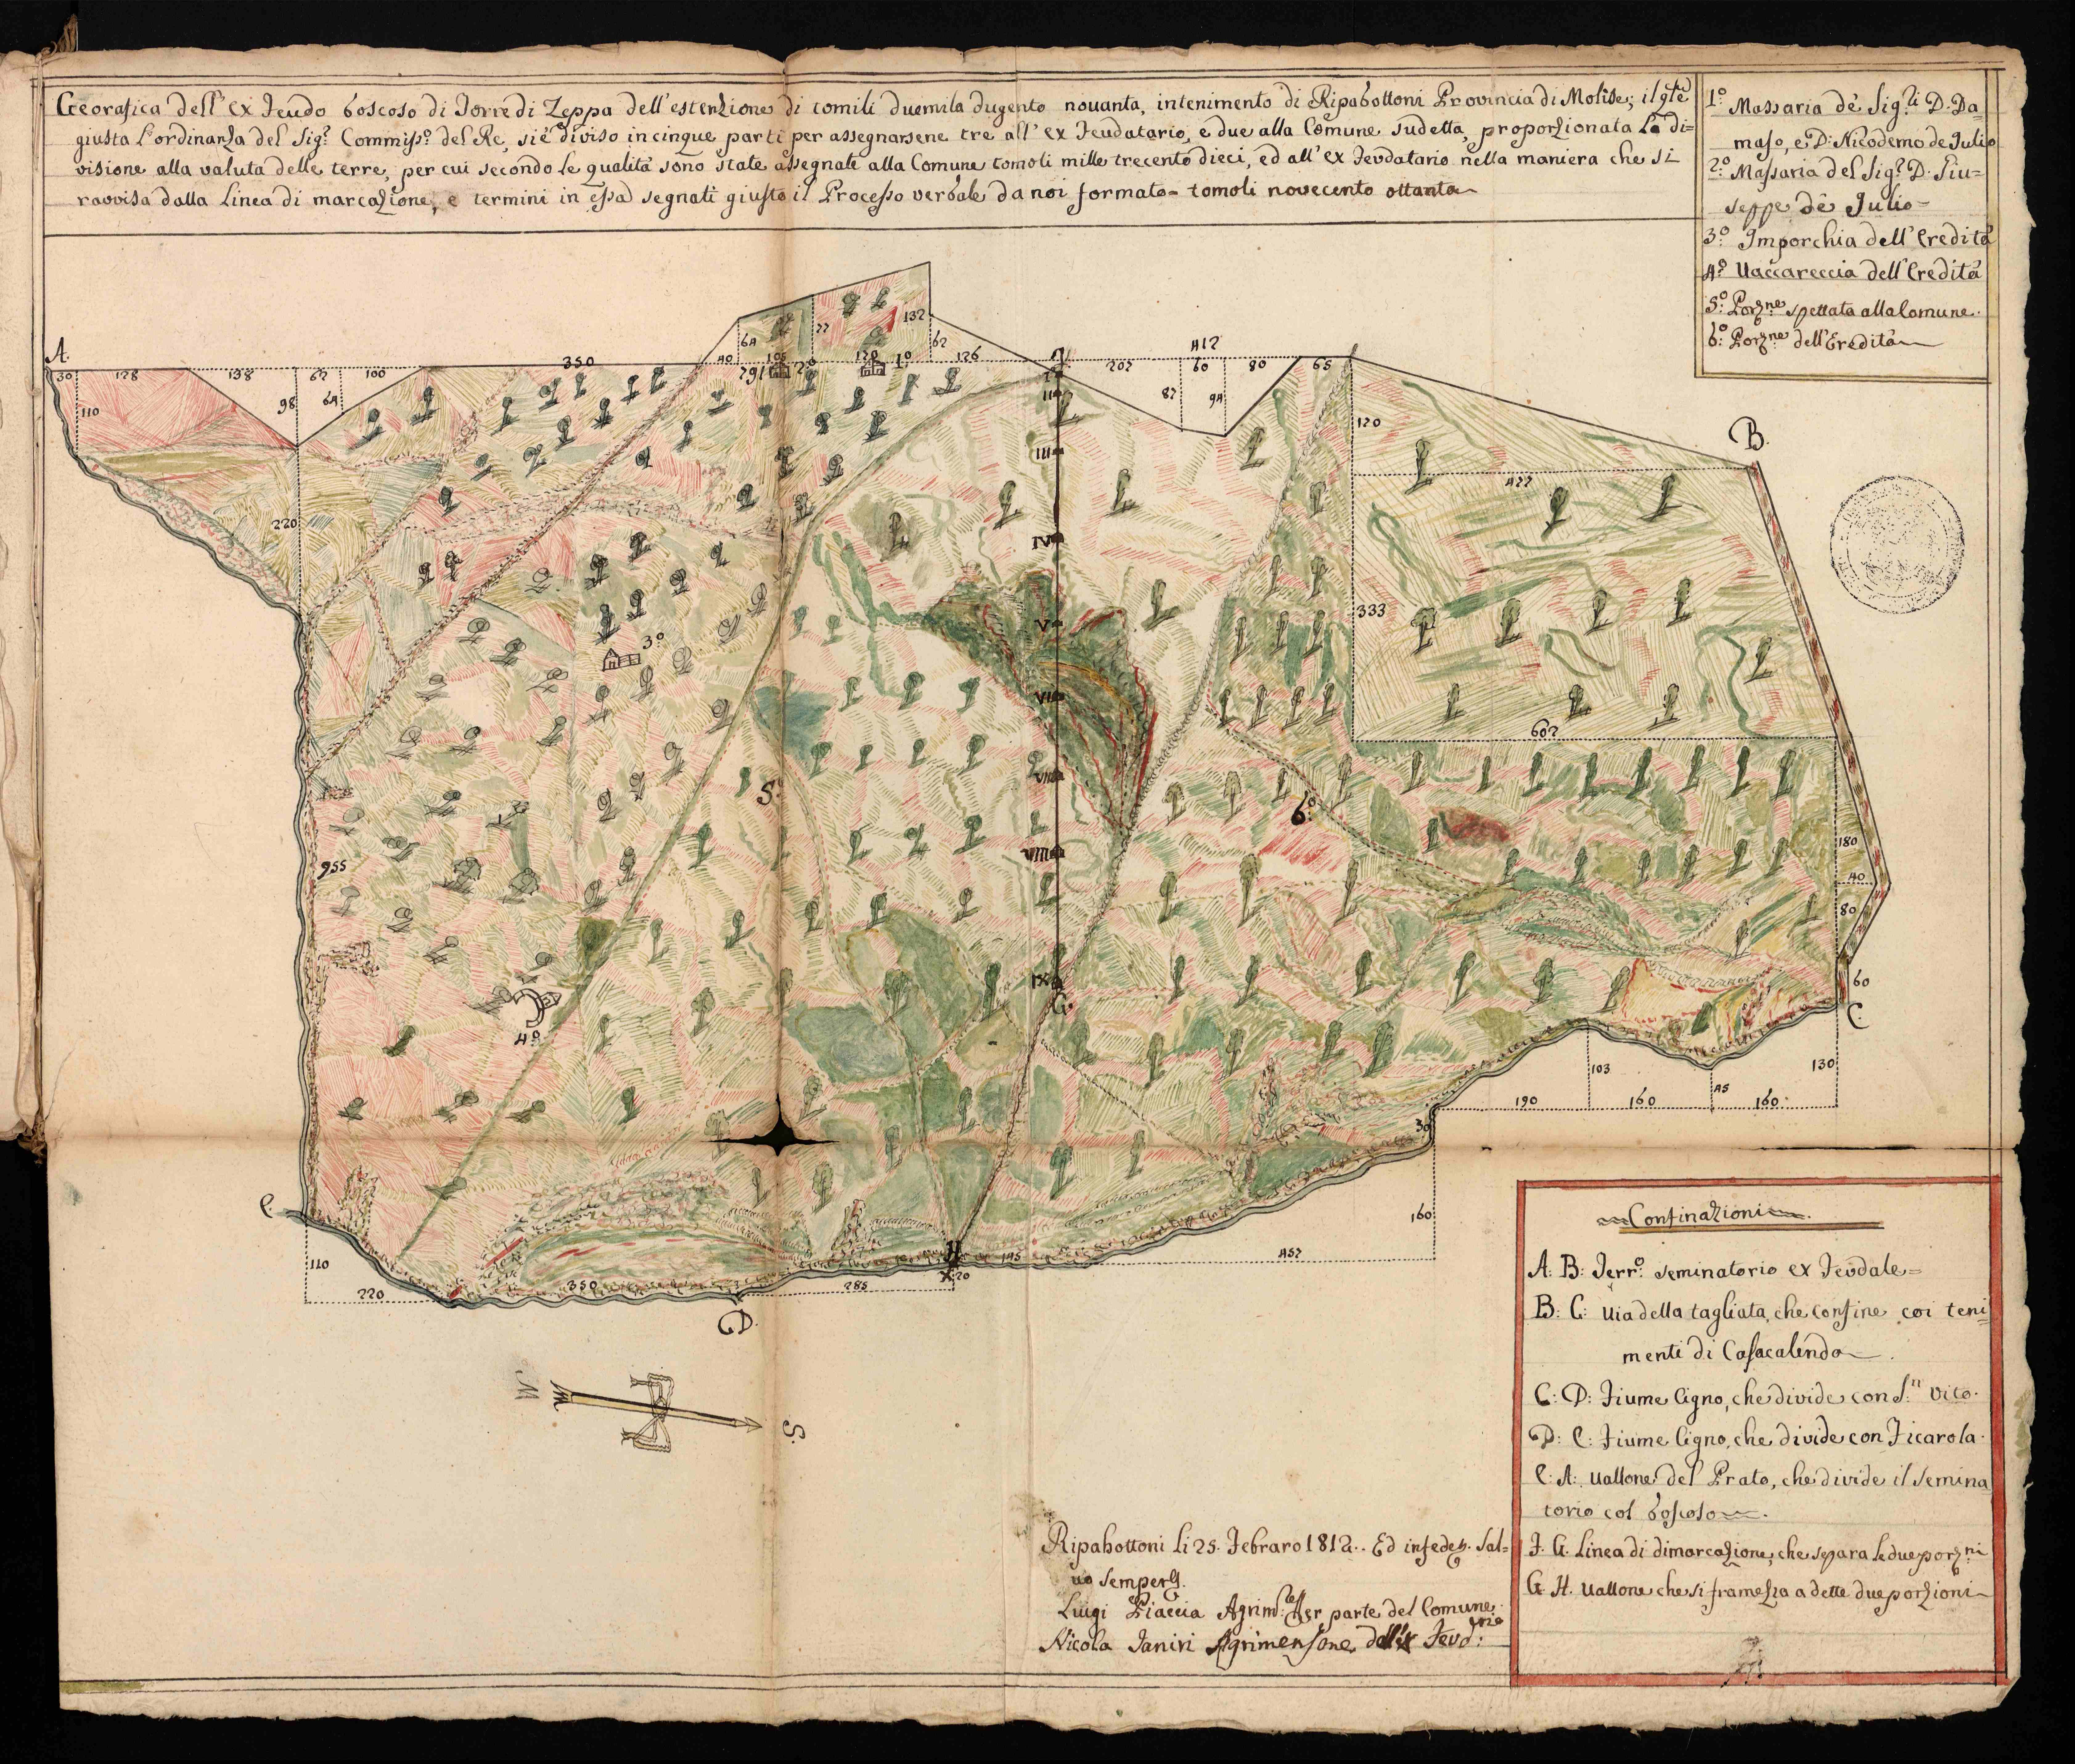 Geografica dell' ex Feudo boscoso di Torre di Zeppa dell' estenzione di tomili duemila dugento nouanta, intenimento di Ripabottoni Provincia di Molise; il qle
giusta l'ordinanza del Sigr. Commisso. del Re, si é diviso in cinque parti per assegnarsene tre all' ex Feudatario, e due alla Comune sudetta, proporzionata la di=
visione alla valuta delle terre, per cui secondo le qualitá sono state assegnate alla Comune tomoli mille trecento dieci, ed all' ex Feudatario nella maniera che si
ravvisa dalla Linea di marcazione, e termini in essa segnati giusto il Processo verbale da noi formato = tomoli novecento ottanta
1.o Massaria de' Sig.li D. Da=
maso, e D. Nicodemo de Julio
2.o Massaria del Sig.r D. Giu=
seppe de Julio =
3.o Imporchia dell' Ereditá
4.o Uaccareccia dell' Ereditá
5.o Porz.ne spettata alla Comune.
6.o Porz.ne dell' Ereditá
A
30 128 138 67 100 350 40 105 120 126 202 60 80 65
412
64 22 132 62
291 2o 1o
110 98 64
87 94
I
II
III
IV
V
VI
VII
VIII
IX
G
B.
120
422
220
333
3o
602
5o
6o
955
180
40
80
60
C
4o
103 45 130
190 160 160
30
160
E.
110
220
350
285
H
X 20
145
452
D.
M
S.
Confinazioni
A: B: Terr.o seminatorio ex Feudale =
B: C: Uia della tagliata, che confine coi teni=
menti di Casacalenda
C: D: Fiume Cigno, che divide con S.n Vito.
D: E: Fiume Cigno, che divide con Ficarola.
E: A: Uallone del Prato, che divide il semina
torio col boscoso
F. G. Linea di dimarcazione, che separa le due porz.ni
G H. Uallone che si framezza a dette due porzioni
Ripabottoni li 25. Febraro 1812.. Ed in fede Sal=
uo semper
Luigi Piaccia Agrim.re per parte del Comune.
Nicola Janiri Agrimensore dell'ex Feud.rio